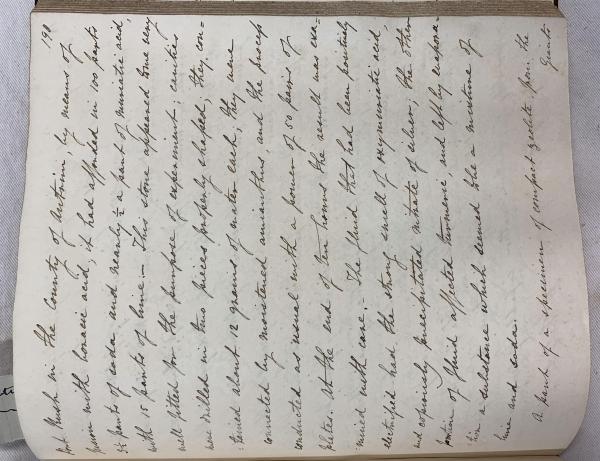 198
Port Rush in the County of Antrim by means of
fusion with boracic acid; it had afforded in 100 parts
3½ parts of soda and nearly ½ a part of muriatic acid,
with 15 parts of lime. – This stone appeared to me very
well fitted for the purpose of experiment; cavities
were drilled in two pieces properly shaped, they con=
:tained about 12 grains of water each; they were
connected by moistened amianthus, and the process
conducted as usual with a power of 50 pairs of
plates. At the end of ten hours the result was exa=
:mined with care. – The fluid that had been positively
electrified had the strong smell of oxymuriatic acid,
and copiously precipitated nitrate of silver; the other
portion of fluid affected turmeric, and left by evapora=
:tion a substance which seemed to be a mixture of
lime and soda.
A part of a specimen of compact zeolite, from the
Giants